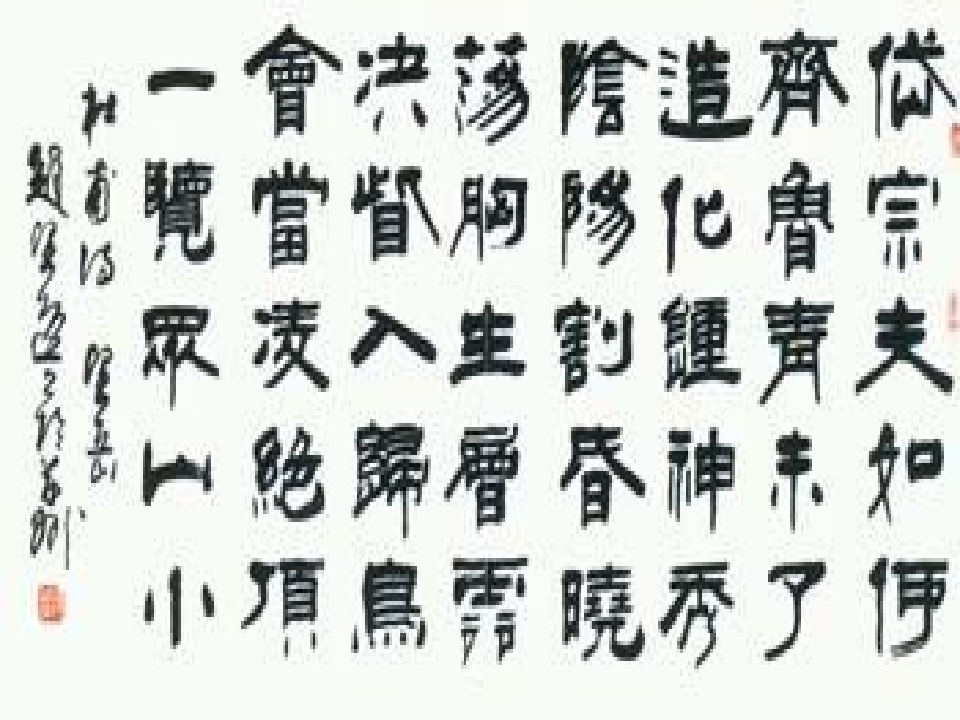 岱宗夫如何
齊魯青未了
造化鍾神秀
陰陽割昏曉
蕩胸生層雲
決眥入歸鳥
會當凌絕頂
一覽眾山小
杜甫詩 望岳